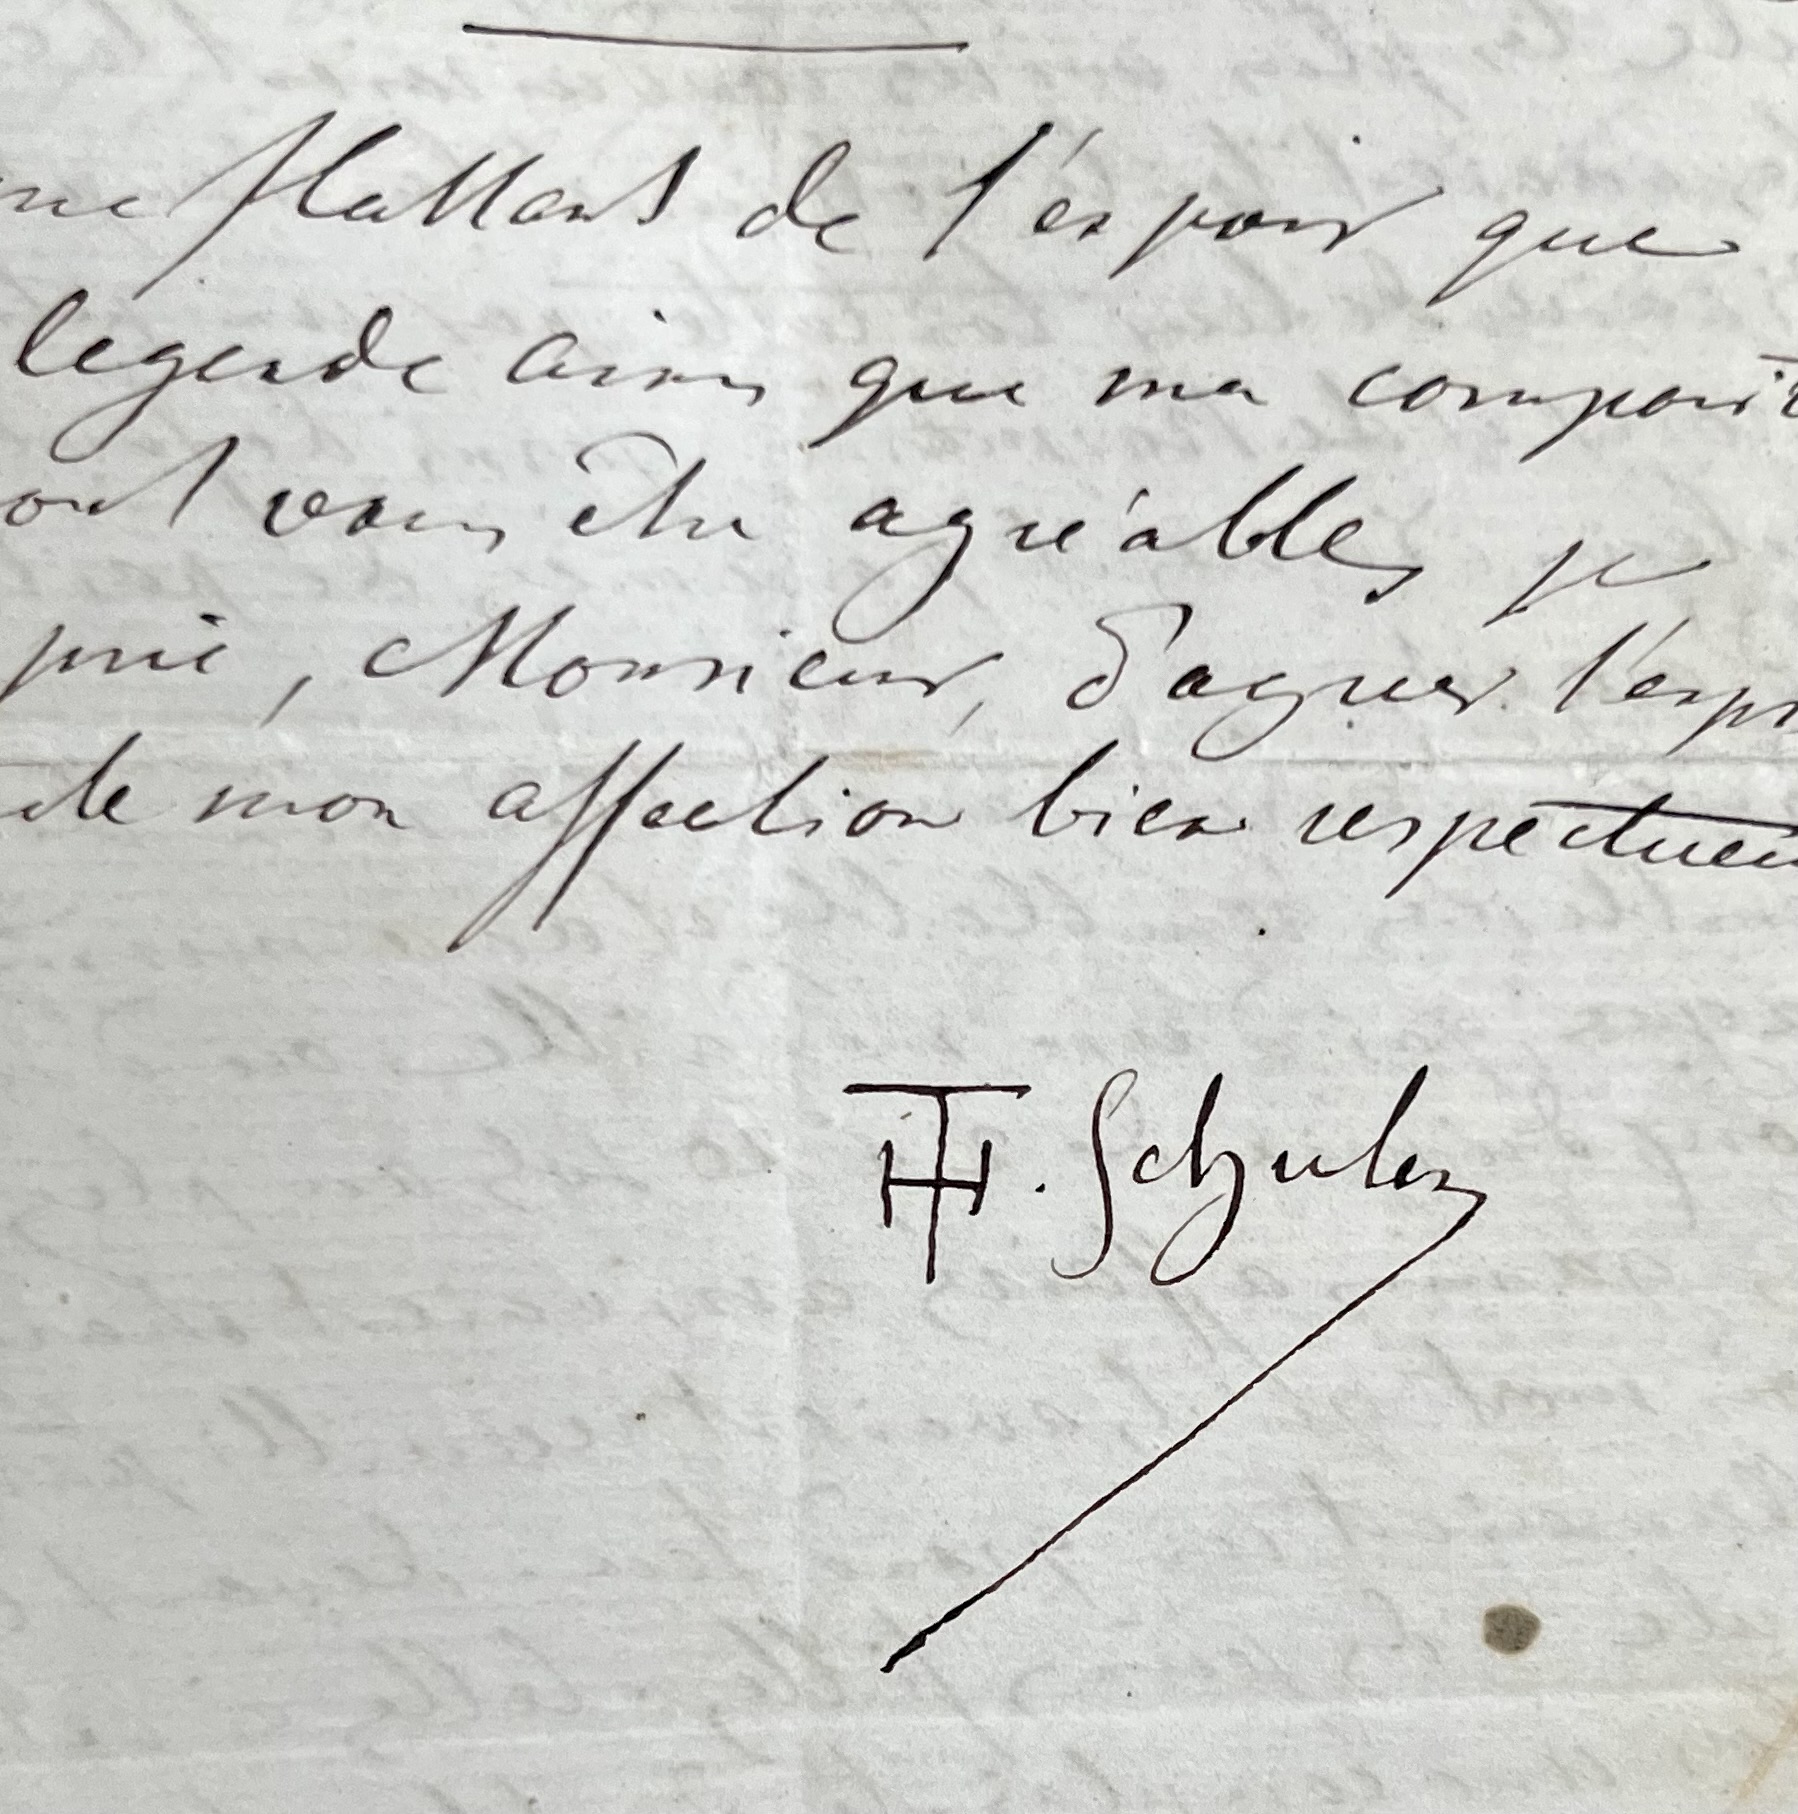 me flattant de l'espoir que
legende ainsi que ma composit
ont vous être agréables je
prie, Monsieur, d'agréer l'expr
de mon affection bien respectueu
TH. Schuler